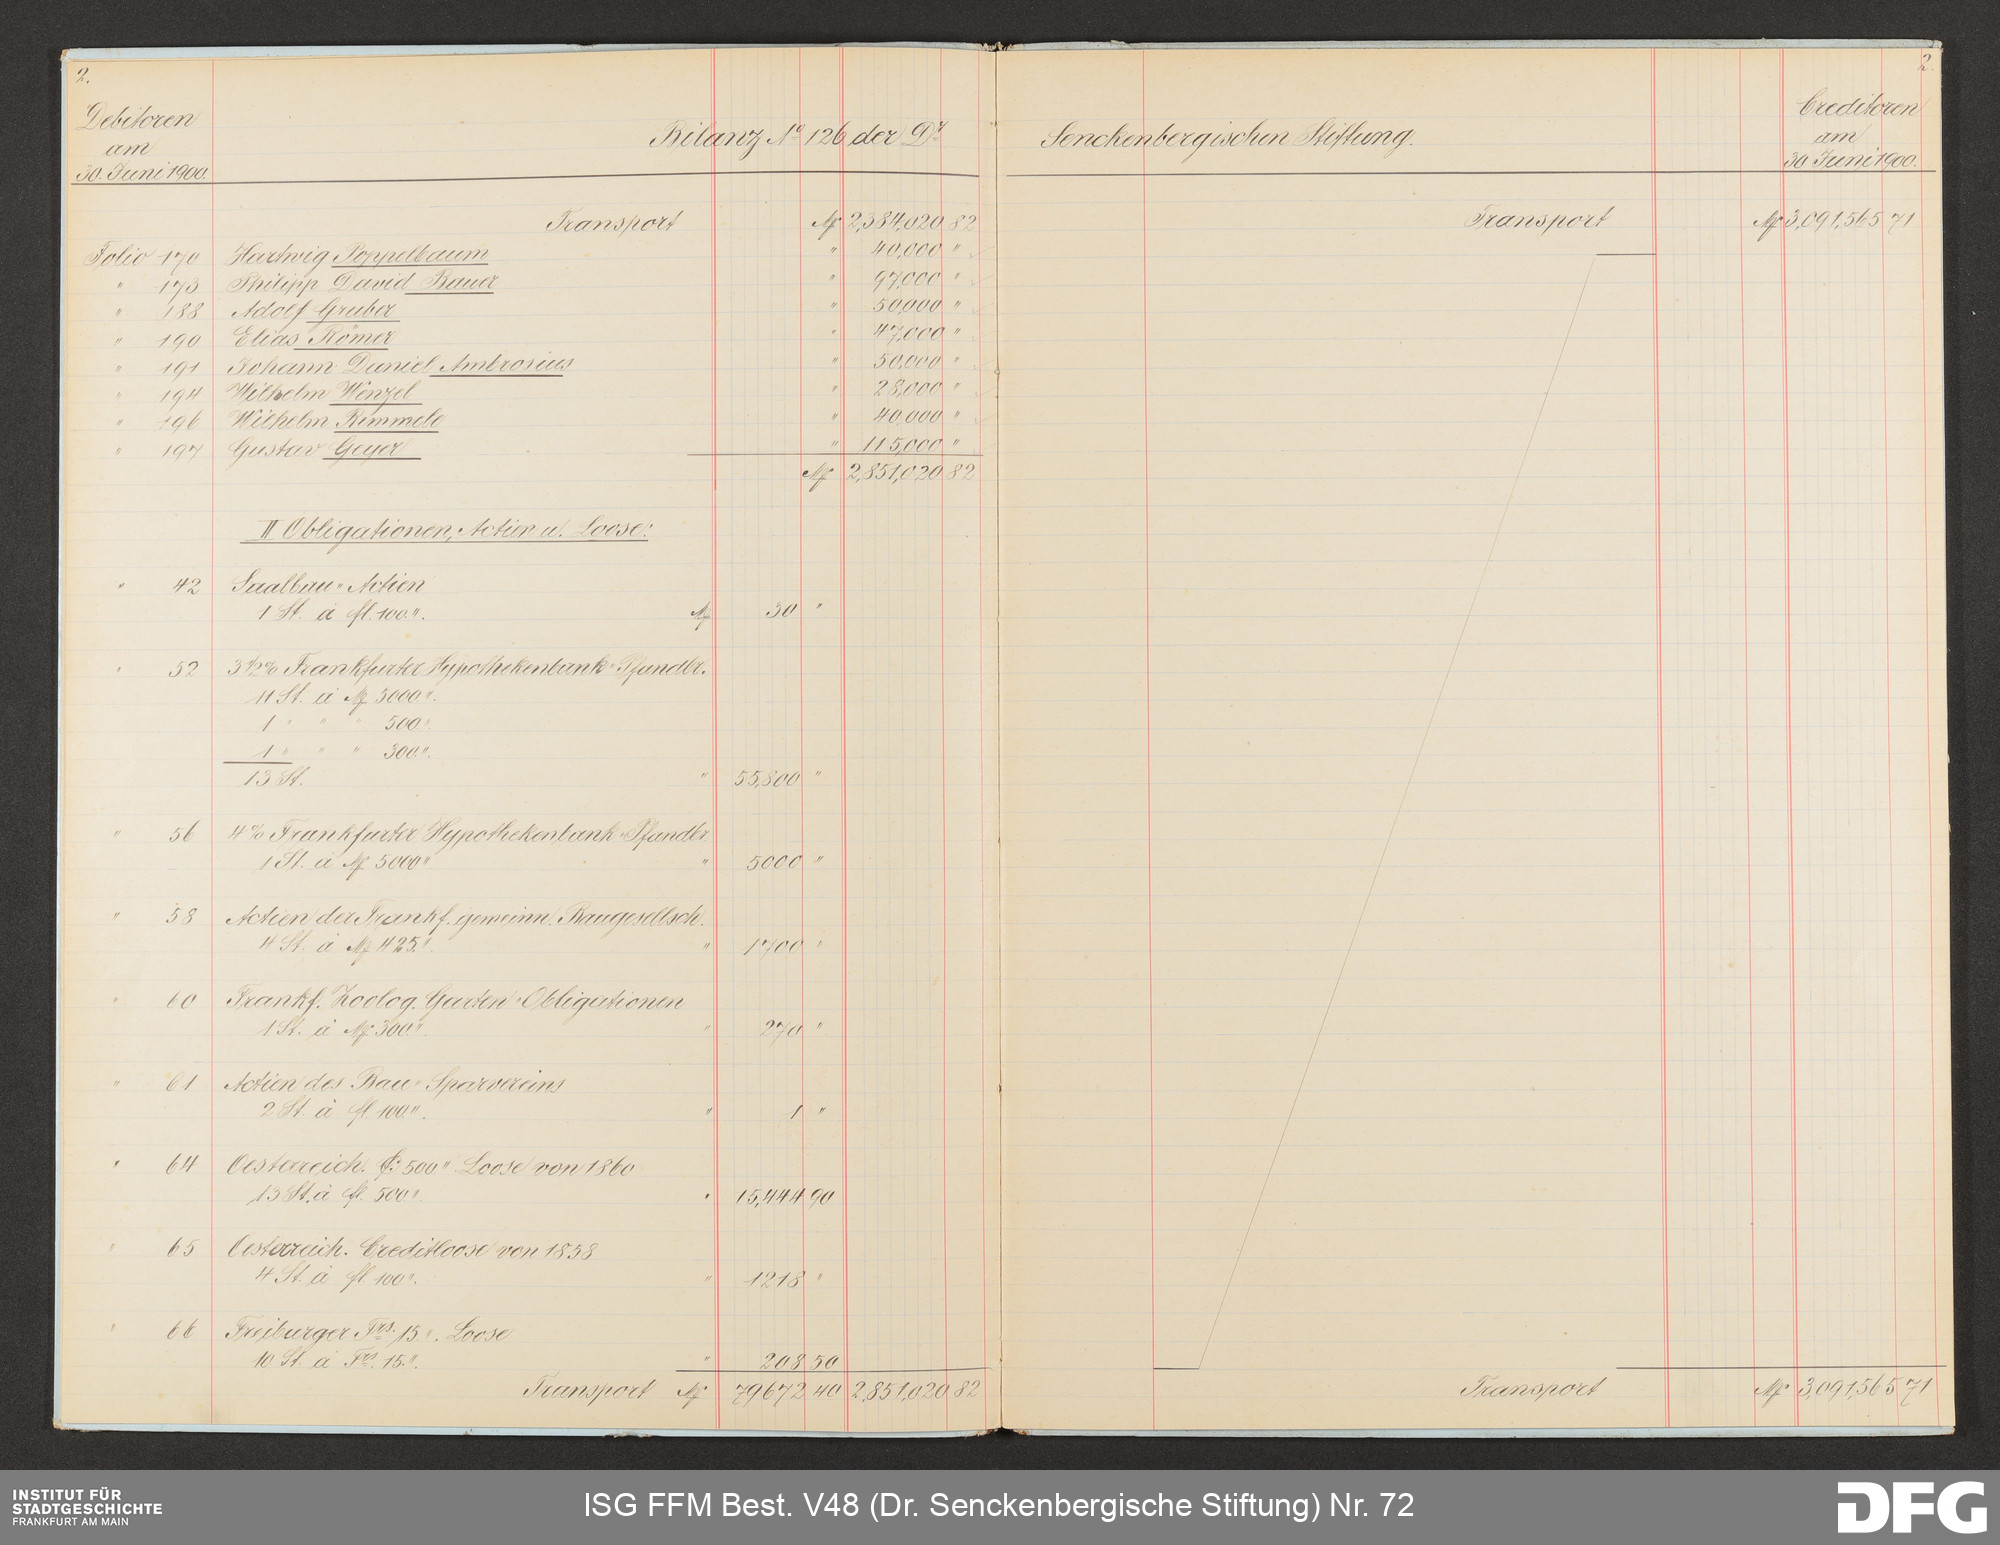 2.
Debitoren
am
30. Juni 1900.
Bilanz No 126 der Dr
Transport M 2,384,020 82
Folio 170 Hartwig Poppelbaum " 40,000 "
" 173 Philipp David Bauer " 97,000 "
" 188 Adolf Gruber " 50,000 "
" 190 Elias Römer " 47,000 "
" 191 Johann Daniel Ambrosius " 50,000 "
" 194 Wilhelm Wenzel " 28,000 "
" 196 Wilhelm Rimmele " 40,000 "
" 197 Gustav Geyer " 115,000 "
M 2,851,020 82
II Obligationen, Actien u. Loose:
" 42 Saalbau-Actien
1 St. à fl. 100.". M 30 "
" 52 3 1/2% Frankfurter Hypothekenbank-Pfandbr.
11 St. à M 5000".
1 " " " 500".
1 " " " 300.".
13 St. " 55,800 "
" 56 4% Frankfurter Hypothekenbank-Pfandbr
1 St. à M 5000" " 5000 "
" 58 Actien der Frankf. gemeinn. Baugesellsch.
4 St. à M 425.". " 1700 "
" 60 Frankf. Zoolog. Garten-Obligationen
1 St. à M 300" " 270 "
" 61 Actien des Bau-Sparvereins
2 St. à fl 100.". " 1 "
" 64 Oesterreich. fl: 500" Loose von 1860
13 St. à fl. 500". " 15,444 90
" 65 Oesterreich. Creditloose von 1858
4 St. à fl. 100". " 1218 "
" 66 Freiburger Frs. 15.". Loose
10 St. à Frs. 15.". " 208 50
Transport M 79672 40 2,851,020 82
2.
Senckenbergischen Stiftung.
Creditoren
am
30 Juni 1900.
Transport M 3,091,565 71
Transport M 3,091,565 71
INSTITUT FÜR
STADTGESCHICHTE
FRANKFURT AM MAIN
ISG FFM Best. V48 (Dr. Senckenbergische Stiftung) Nr. 72
DFG